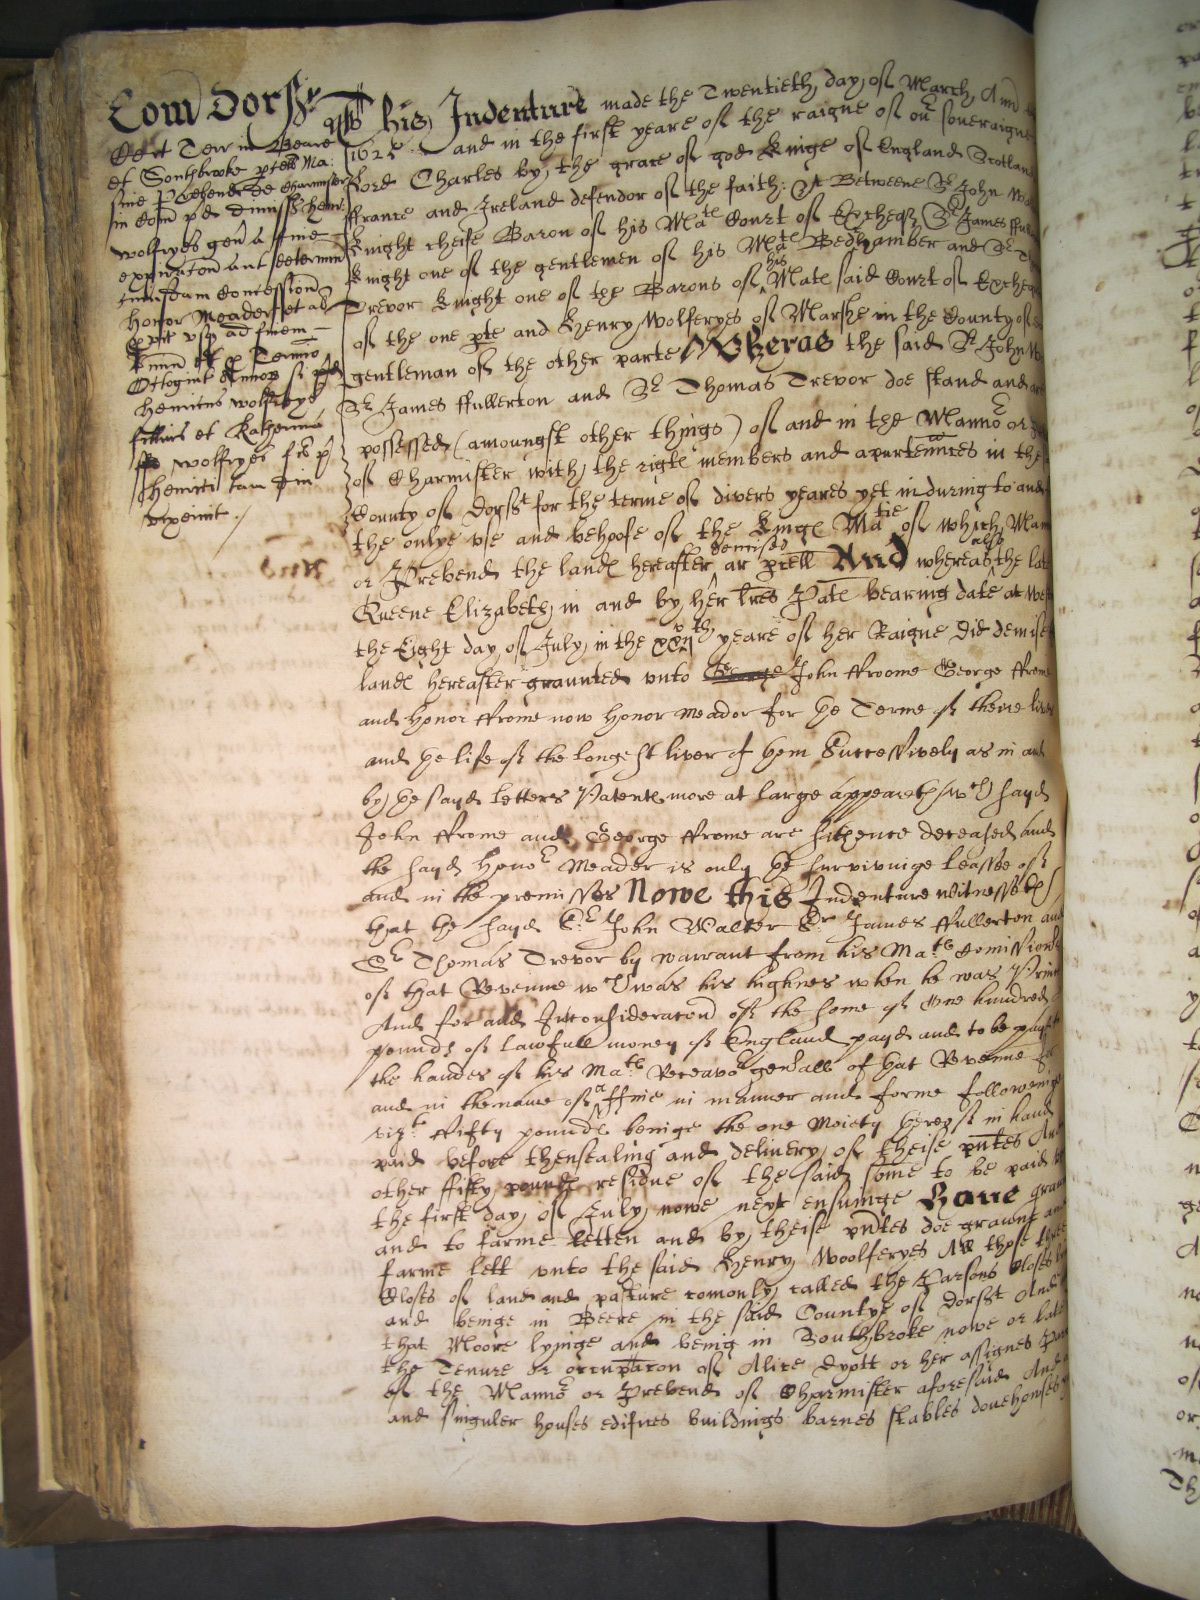 Com Dorst
Cert Terr in Beare
et Southbrooke ptell Ma:
sive Prebende de Charmister
in Com pd dimiss Henr:
Wolfryes gen a fine
expiracon aut determin
cuiusdam Concession
Honor Meader et al
put usq ad finem
et p Termino
Octogint Annor si pd
Henricus Wolfryes
fillius et Katherina
Wolfryes fil p
Henrici tam diu
vixerint
This Indenture made the Twentieth day of March Ann
1625 and in the first yeare of the raigne of our soveraigne
Lord Charles by the grace of god Kinge of England Scotland
ffrance and Ireland defendor of the faith &c Betweene Sr John Wa
Knight cheife Baron of his Mate Court of Excheqr Sr James ffull
Knight one of the gentlemen of his Mate Bedchamber and Sr T
Trevor Knight one of the Barons of his Mate said Court of Excheq
of the one pte and Henry Wolferyes of Marshe in the County of
gentleman of the other parte Wheras the said Sr John W
Sr James ffullerton and Sr Thomas Trevor doe stand and ar
possessed (amoungst other things) of and in the Mannor or
of Charmister with the right members and apurtennces in the
County of Dorst for the terme of divers yeares yet induring to and
the onlye use and behoofe of the Kings Matie of which Man
or Prebend the lands hereafter demised ar pcell And whereas also the late
Queene Elizabeth in and by her lres Pate bearing date at West
the Eight day of July in the yeare of her Raigne Did demise
lands hereafter graunted unto George John ffroome George ffrome
and Honor ffrome now Honor Meador for ye Terme of theire lives
and ye life of the longest liver of them Successively as in and
by ye sayd letters Patents more at large appeareth wch sayd
John ffrome and George ffrome are sithence deceased and
the sayd Honor Meader is only ye survivinge leassee of
and in the premisses Nowe this Indenture witnesseth
that the sayd Sr John Walter Sr James ffullerton and
Sr Thomas Trevor by warrant from his Mate Comission
of that Revenue wch was his highnes when he was Prin
And for and In consideracon of the some of One hundred
pounds of lawfull money of England payd and to be payd
the handes of his Mate Receavor genrall of that Revenue for
and in the name of a ffine in manner and forme followeinge
vizt ffifty pounds beinge the one Moiety thereof in hand
paid before thensealing and delivery of theise pntes And
other ffifty pounds residue of the said some to be paid
the first day of July nowe next ensuinge Have graun
and to farme letten and by theise pntes doe graunt and
farme lett unto the said Henry Woolferyes All those three
Closes of land and pasture comonly called the Parsons Closes
and beinge in Beere in the said Countye of Dorst And
that Moore lyinge and being in Southbroke nowe or late
the Tenure or occupacon of Alice Dyott or her assignes
of the Mannor or Prebend of Charmister aforesaid And
and singuler houses edifices buildings barnes stables dovehouses